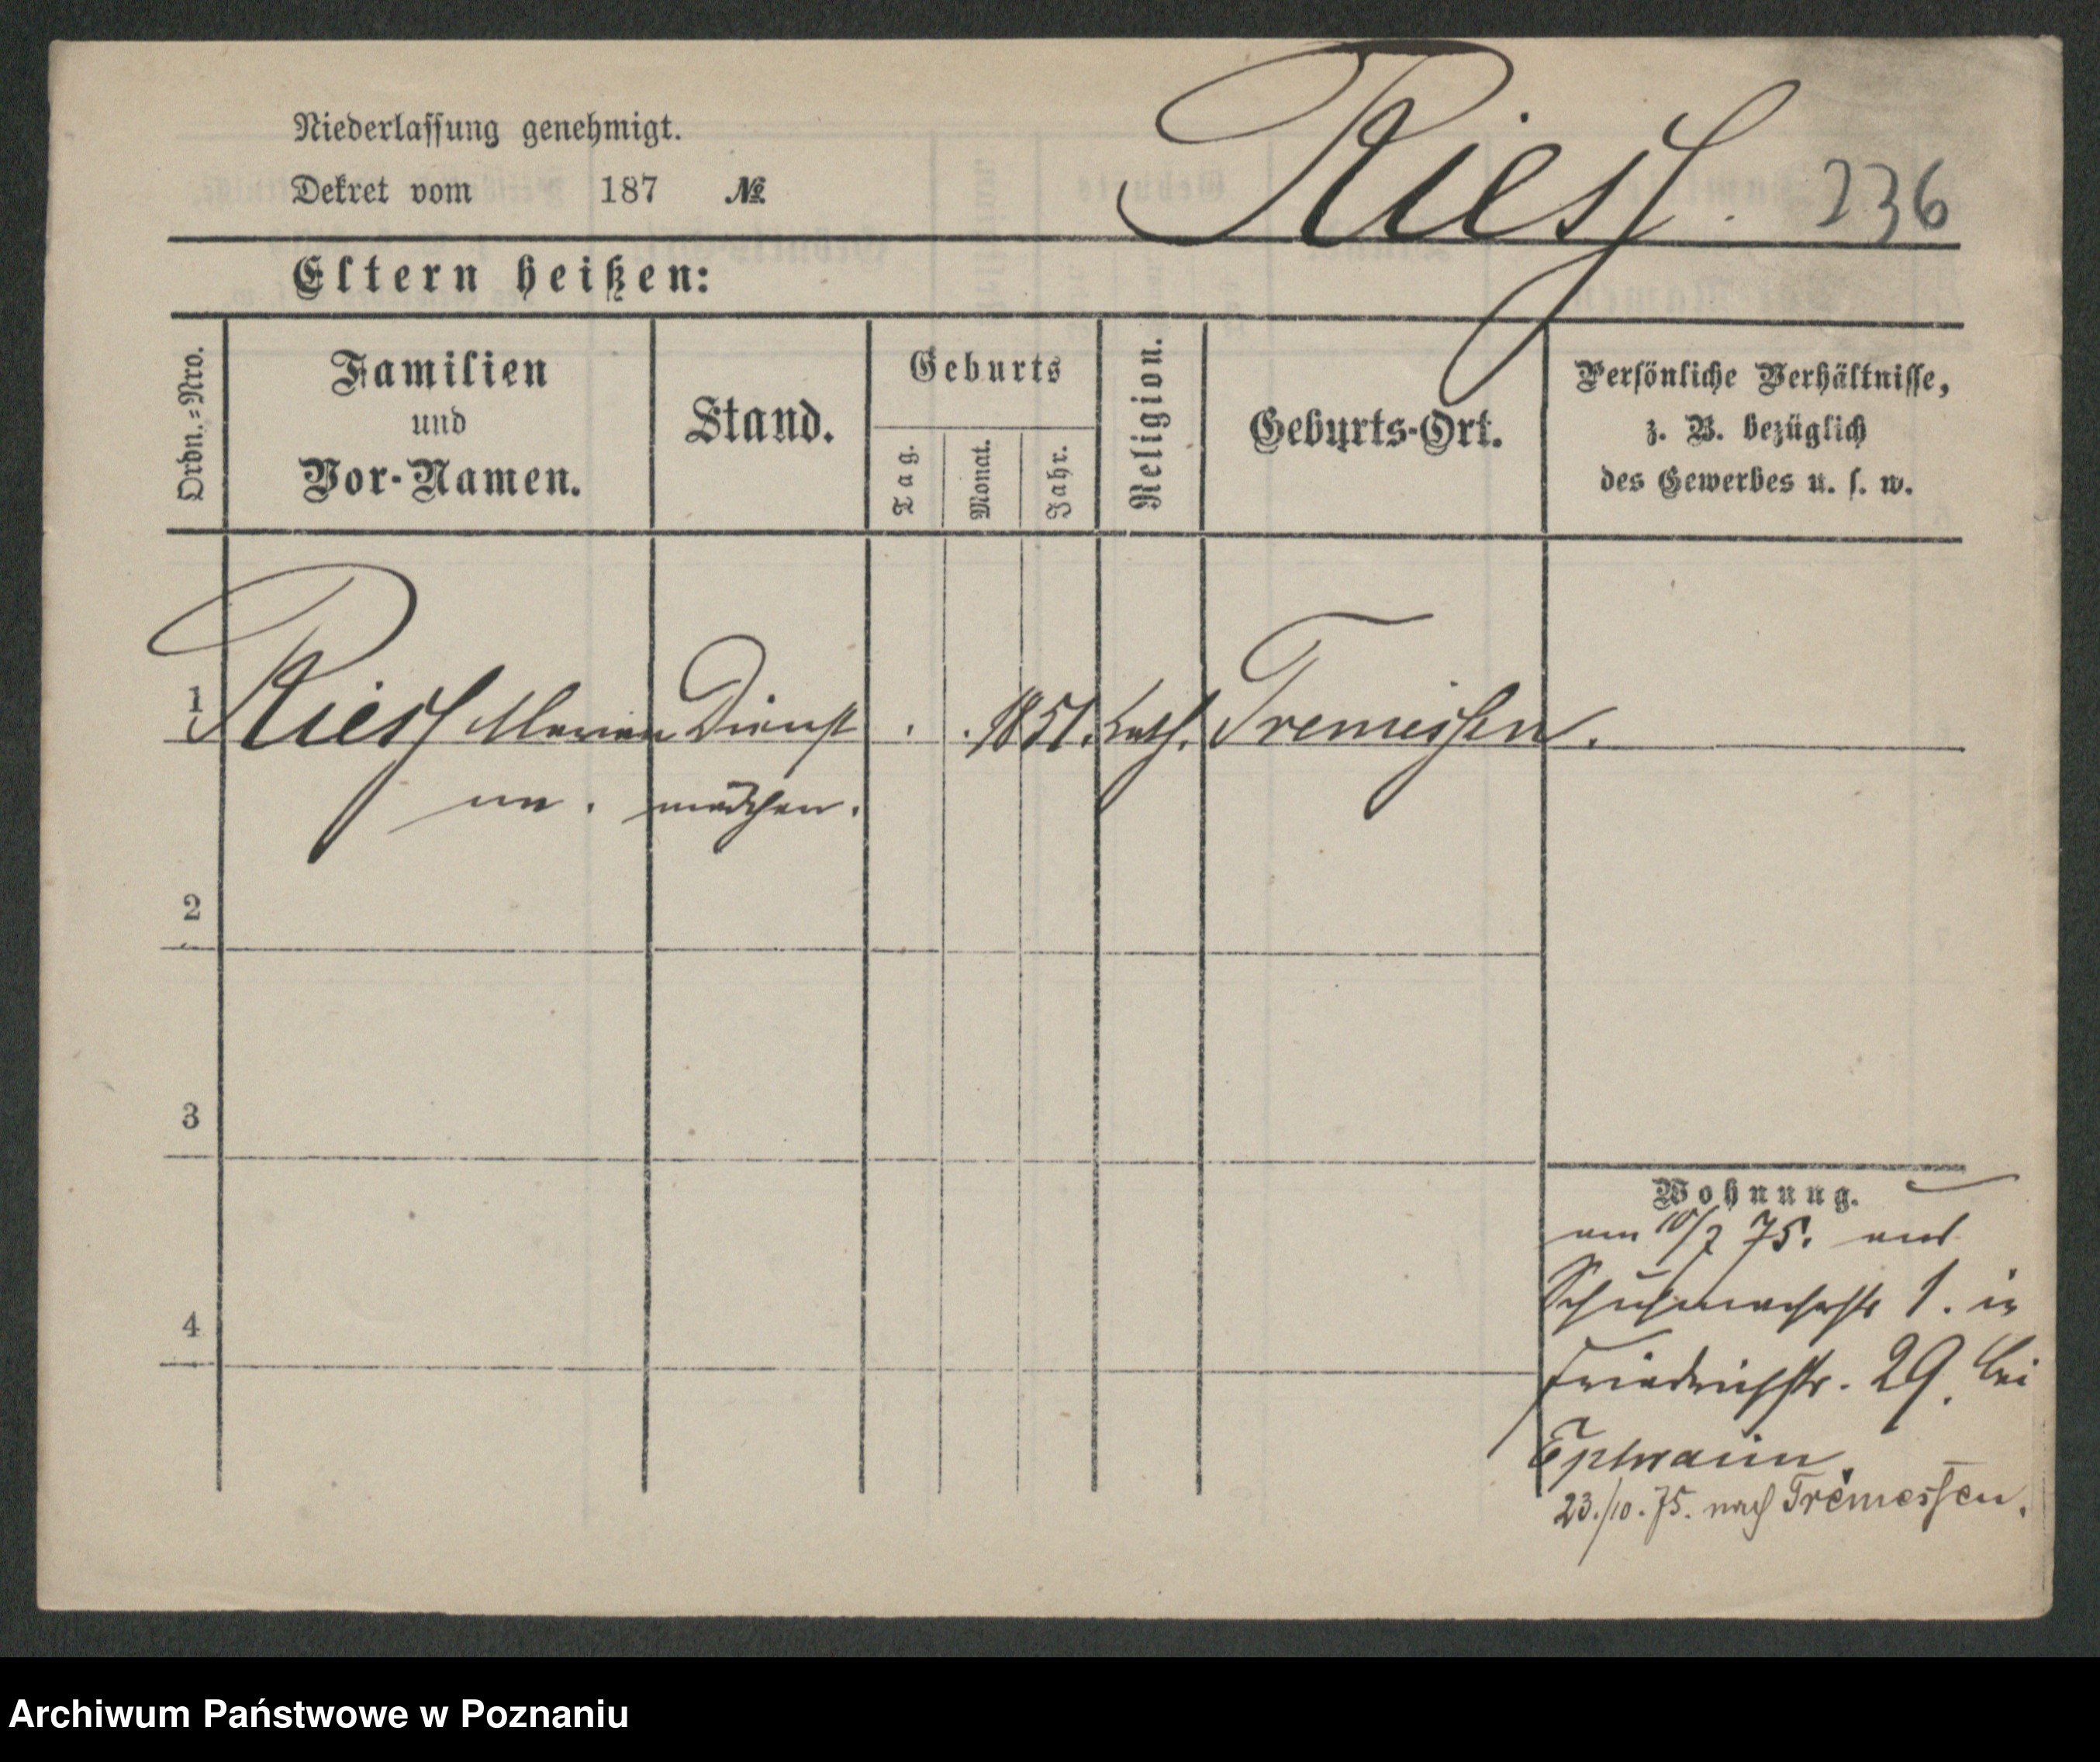 Niederlassung genehmigt.
Dekret vom 187 №
Riess. 236
Eltern heißen:
Ordn.-Nro.
Familien
und
Vor-Namen.
Stand.
Geburts
Tag.
Monat.
Jahr.
Religion.
Geburts-Ort.
Persönliche Verhältnisse,
z. B. bezüglich
des Gewerbes u. s. w.
1 Riess Marian Dienst . . 1851. kath. Tremessen.
na. mädchen.
2
3
4
Wohnung.
am 10/7 75. aus
Schuhmacherstr 1. in
Friedrichstr. 29. bei
Ephraim.
23./10. 75. nach Tremessen.
Archiwum Państwowe w Poznaniu